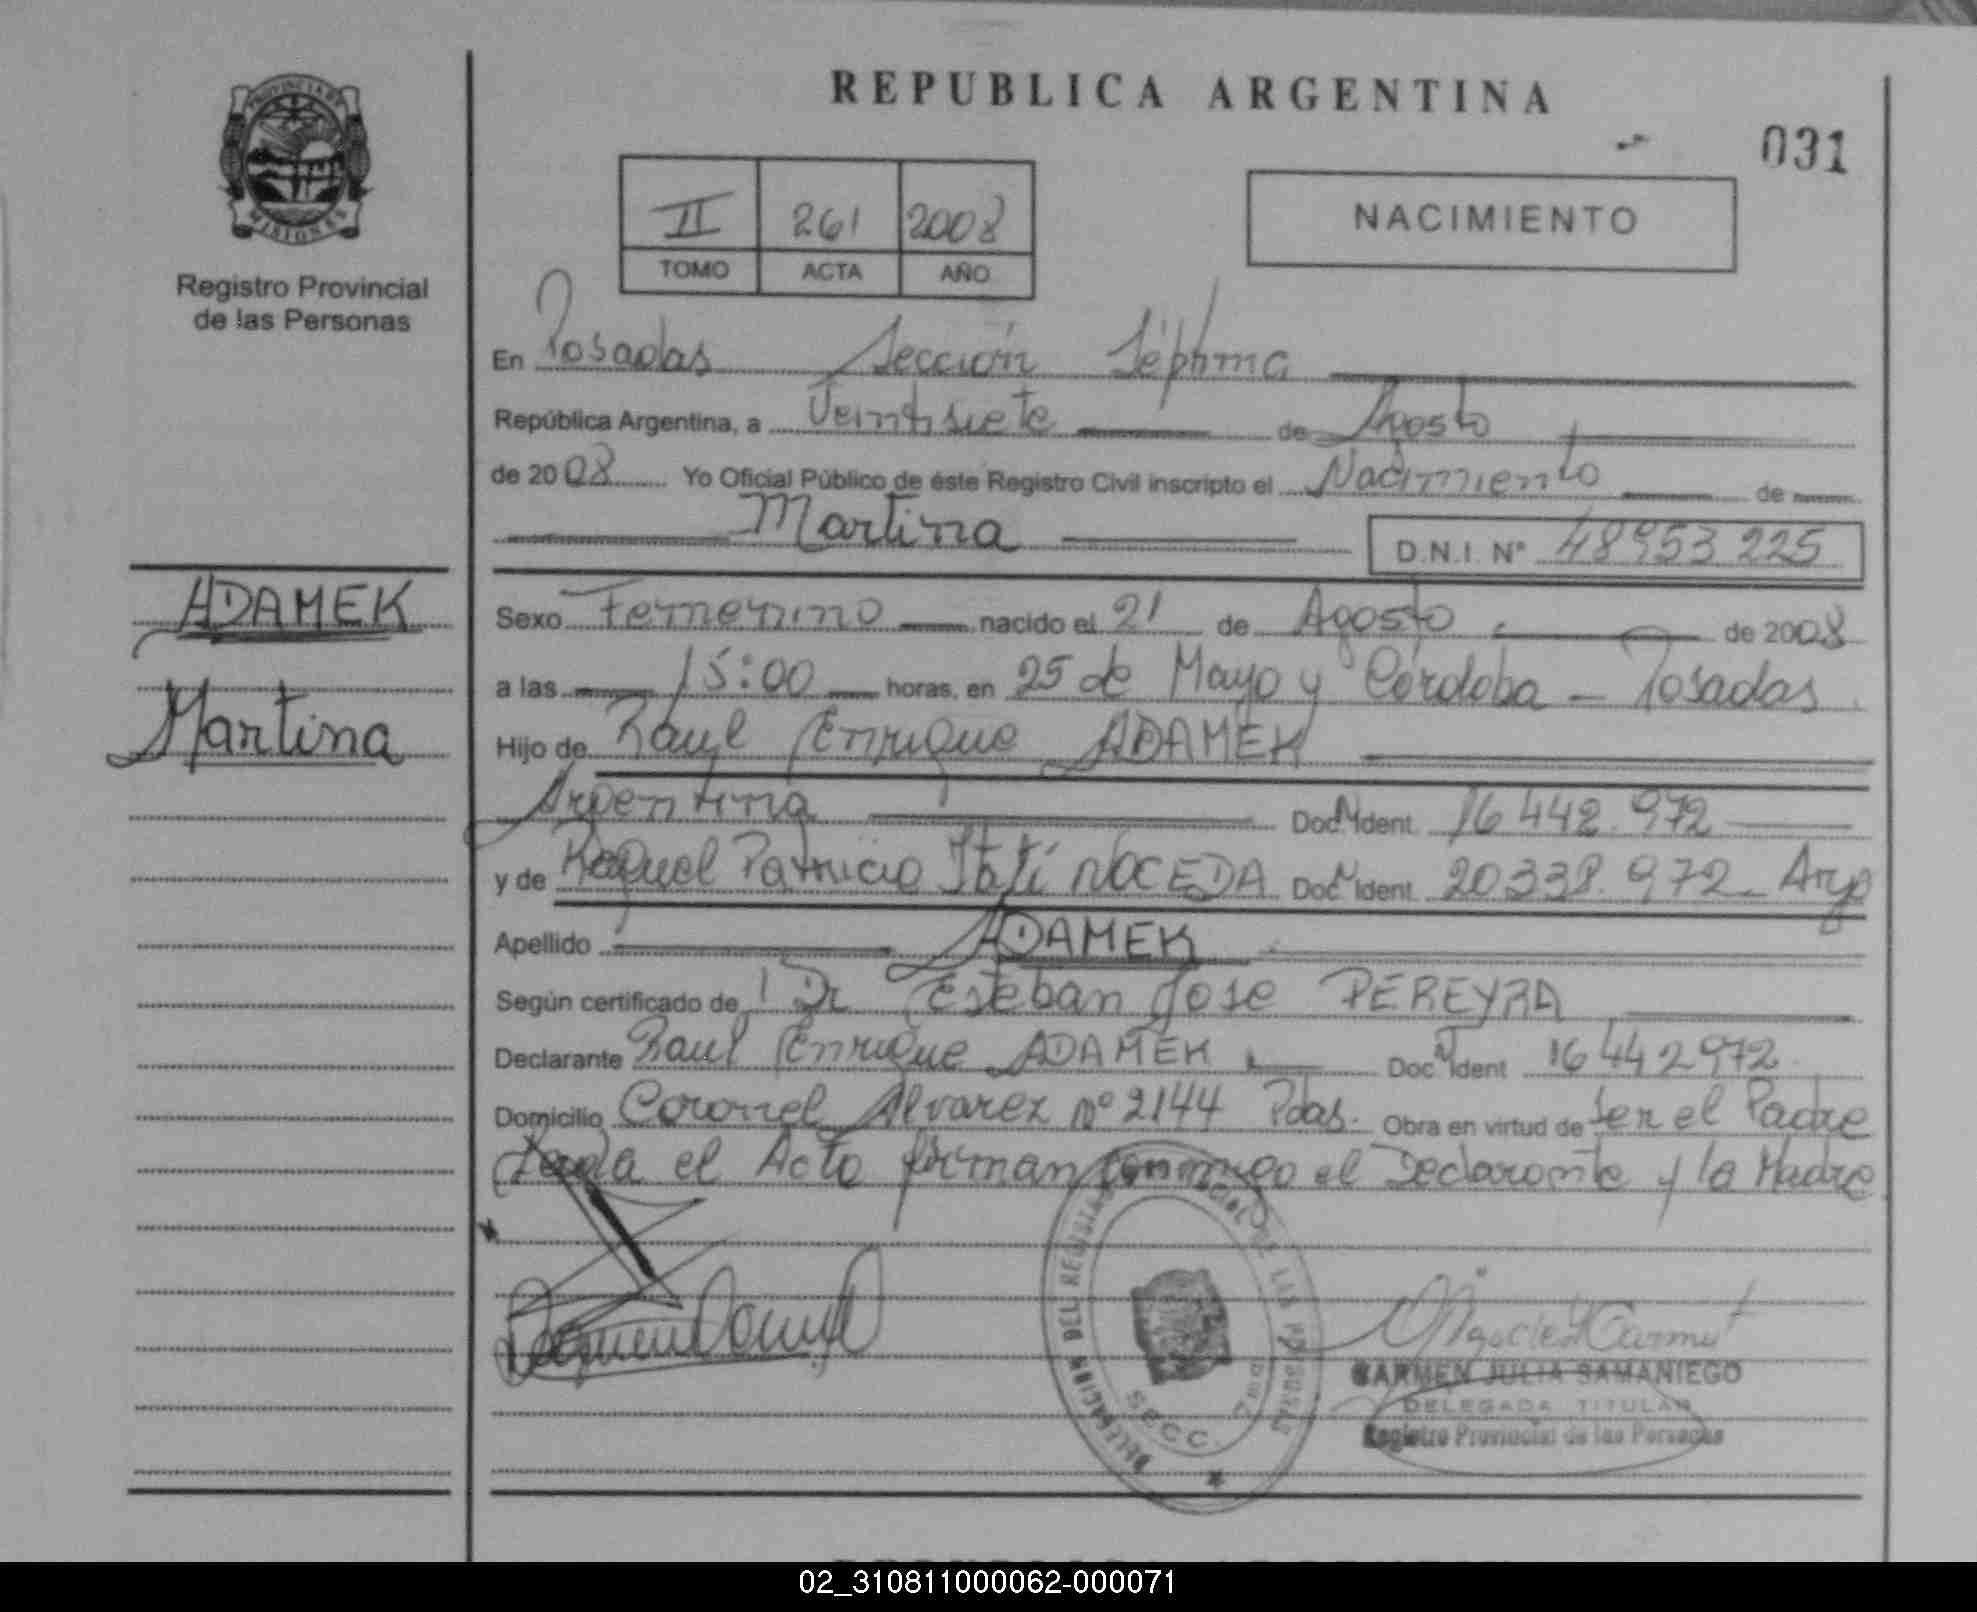 REPUBLICA ARGENTINA
031
PROVINCIA DE
MISIONES
Registro Provincial
de las Personas
II 261 2008
TOMO ACTA AÑO
NACIMIENTO
En Posadas Sección Séptima
República Argentina, a Veintisiete de Agosto
de 2008 Yo Oficial Público de éste Registro Civil inscripto el Nacimiento de
Martina D.N.I. Nº 48953225
ADAMEK
Martina
Sexo Femenino nacido el 21 de Agosto de 2008
a las 15:00 horas, en 25 de Mayo y Córdoba - Posadas
Hijo de Raul Enrique ADAMEK
Argentina Doc. Ident. 16 442.972
y de Raquel Patricia Itatí NOCEDA Doc. Ident. 20.338.972 - Arg
Apellido ADAMEK
Según certificado de Dr Esteban Jose PEREYRA
Declarante Raul Enrique ADAMEK Doc. Ident 16 442972
Domicilio Coronel Alvarez nº 2144 Pdas. Obra en virtud de ser el Padre
Leida el Acto firman conmigo el Declarante y la Madre
DELEGACION DEL REGISTRO PROVINCIAL DE LAS PERSONAS
SECC. 7
CARMEN JULIA SAMANIEGO
DELEGADA TITULAR
Registro Provincial de las Personas
02_310811000062-000071